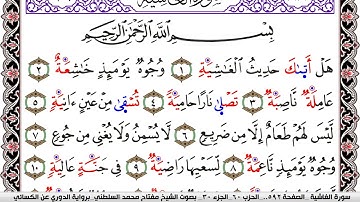 سورة الغاشية
بِسْمِ اللَّهِ الرَّحْمَٰنِ الرَّحِيمِ
هَلْ أَتَىٰكَ حَدِيثُ الْغَاشِيَةِ ١ وُجُوهٌ يَوْمَئِذٍ خَاشِعَةٌ ٢
عَامِلَةٌ نَّاصِبَةٌ ٣ تَصْلَىٰ نَارًا حَامِيَةً ٤ تُسْقَىٰ مِنْ عَيْنٍ ءَانِيَةٍ ٥
لَّيْسَ لَهُمْ طَعَامٌ إِلَّا مِن ضَرِيعٍ ٦ لَّا يُسْمِنُ وَلَا يُغْنِي مِن جُوعٍ ٧
وُجُوهٌ يَوْمَئِذٍ نَّاعِمَةٌ ٨ لِّسَعْيِهَا رَاضِيَةٌ ٩ فِي جَنَّةٍ عَالِيَةٍ ١٠
سورة الغاشية الصفحة ٥٩٢ الحزب ٦٠ الجزء ٣٠ بصوت الشيخ مفتاح محمد السلطني برواية الدوري عن الكسائي